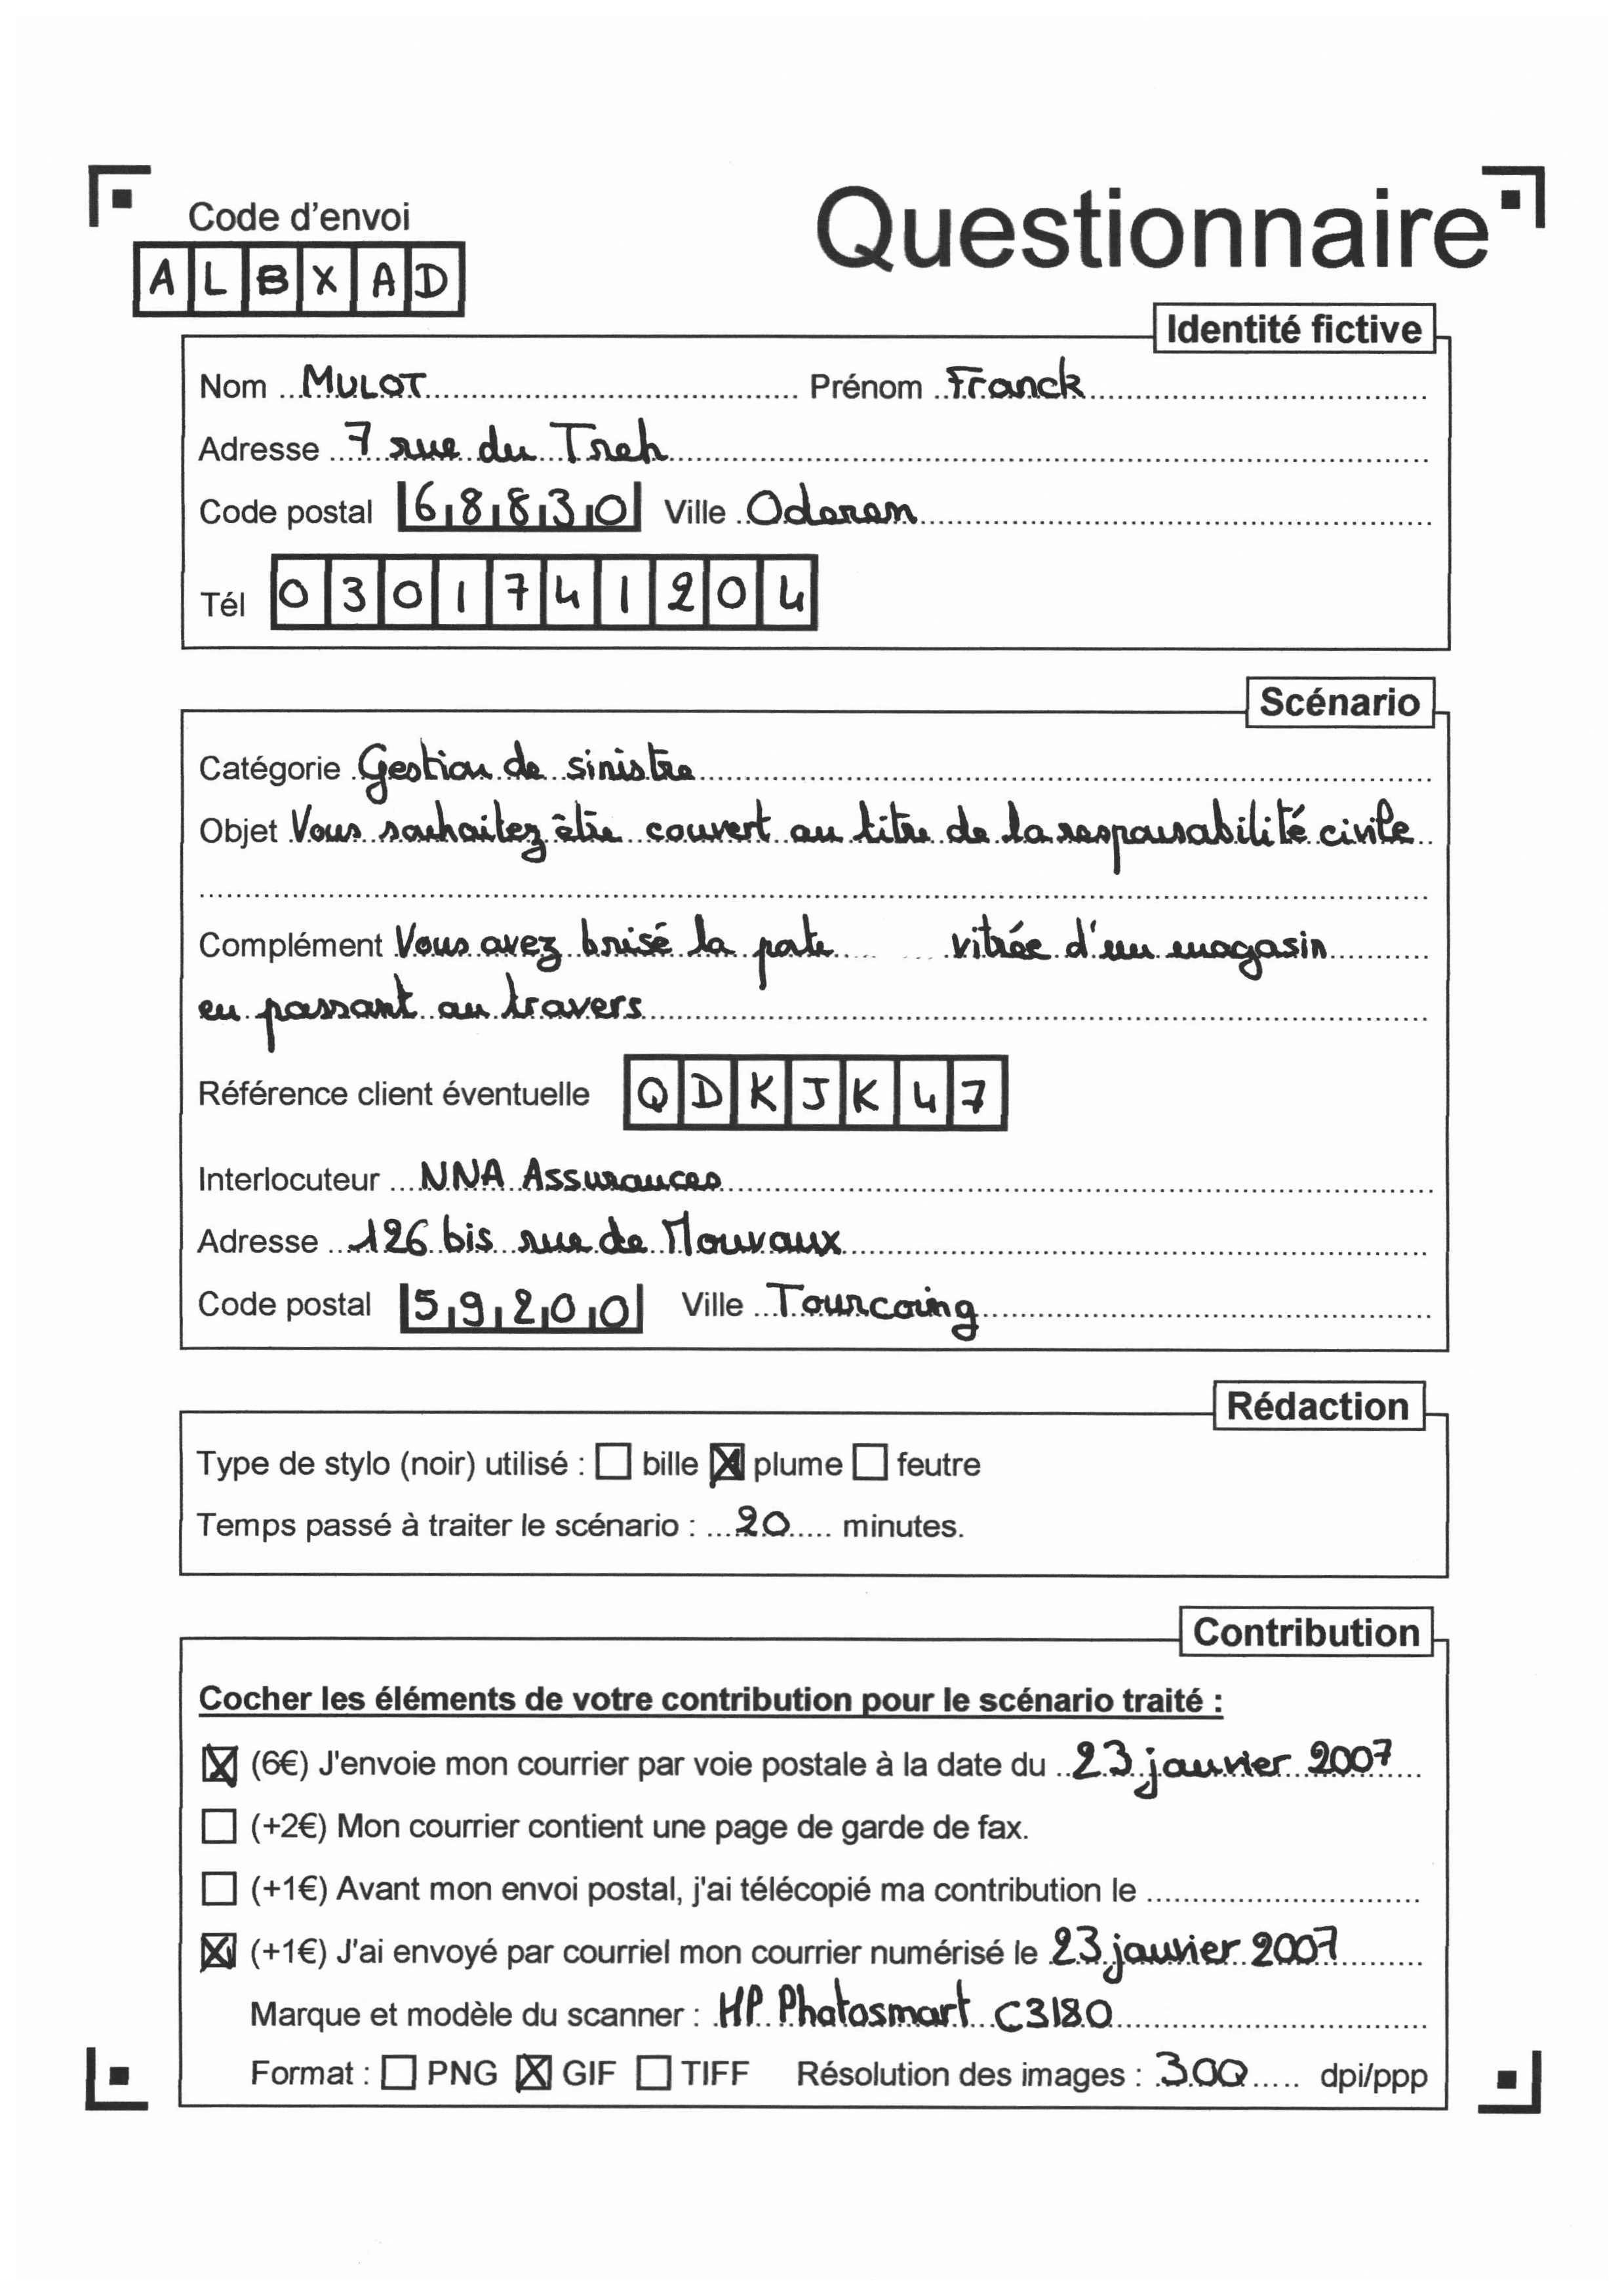 Code d'envoi
ALBXAD
Questionnaire
Identité fictive
Nom MULOT Prénom Franck
Adresse 7 rue du Treh
Code postal 68830 Ville Oderen
Tél 0301741204
Scénario
Catégorie Gestion de sinistre
Objet Vous souhaitez être couvert au titre de la responsabilité civile
Complément Vous avez brisé la porte vitrée d'un magasin
en passant au travers
Référence client éventuelle QDKJK47
Interlocuteur NNA Assurances
Adresse 126 bis rue de Mouvaux
Code postal 59200 Ville Tourcoing
Rédaction
Type de stylo (noir) utilisé : ☐ bille ☒ plume ☐ feutre
Temps passé à traiter le scénario : 20 minutes.
Contribution
Cocher les éléments de votre contribution pour le scénario traité :
☒ (6€) J'envoie mon courrier par voie postale à la date du 23 janvier 2007
☐ (+2€) Mon courrier contient une page de garde de fax.
☐ (+1€) Avant mon envoi postal, j'ai télécopié ma contribution le
☒ (+1€) J'ai envoyé par courriel mon courrier numérisé le 23 janvier 2007
Marque et modèle du scanner : HP Photosmart C3180
Format : ☐ PNG ☒ GIF ☐ TIFF Résolution des images : 300 dpi/ppp